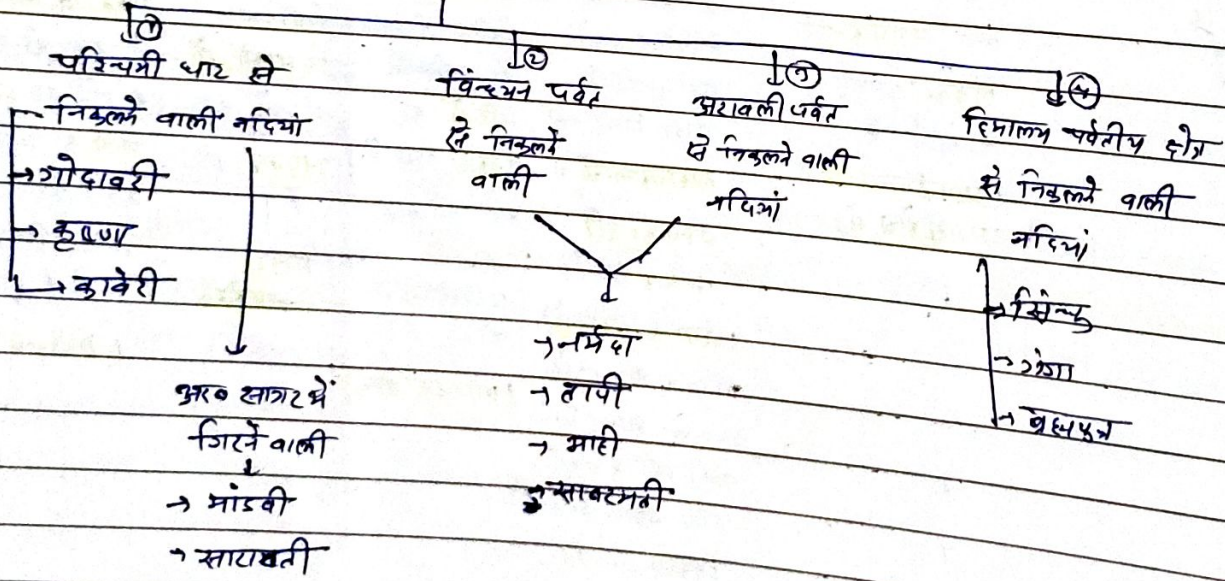 ①
पश्चिमी घाट से
निकलने वाली नदियां
→ गोदावरी
→ कृष्णा
→ कावेरी
अरब सागर में
गिरने वाली
→ मांडवी
→ सारावती
②
विन्ध्यन पर्वत
से निकलने
वाली
③
अरावली पर्वत
से निकलने वाली
नदियां
→ नर्मदा
→ तापी
→ माही
→ साबरमती
④
हिमालय पर्वतीय क्षेत्र
से निकलने वाली
नदियां
→ सिन्धु
→ गंगा
→ ब्रह्मपुत्र